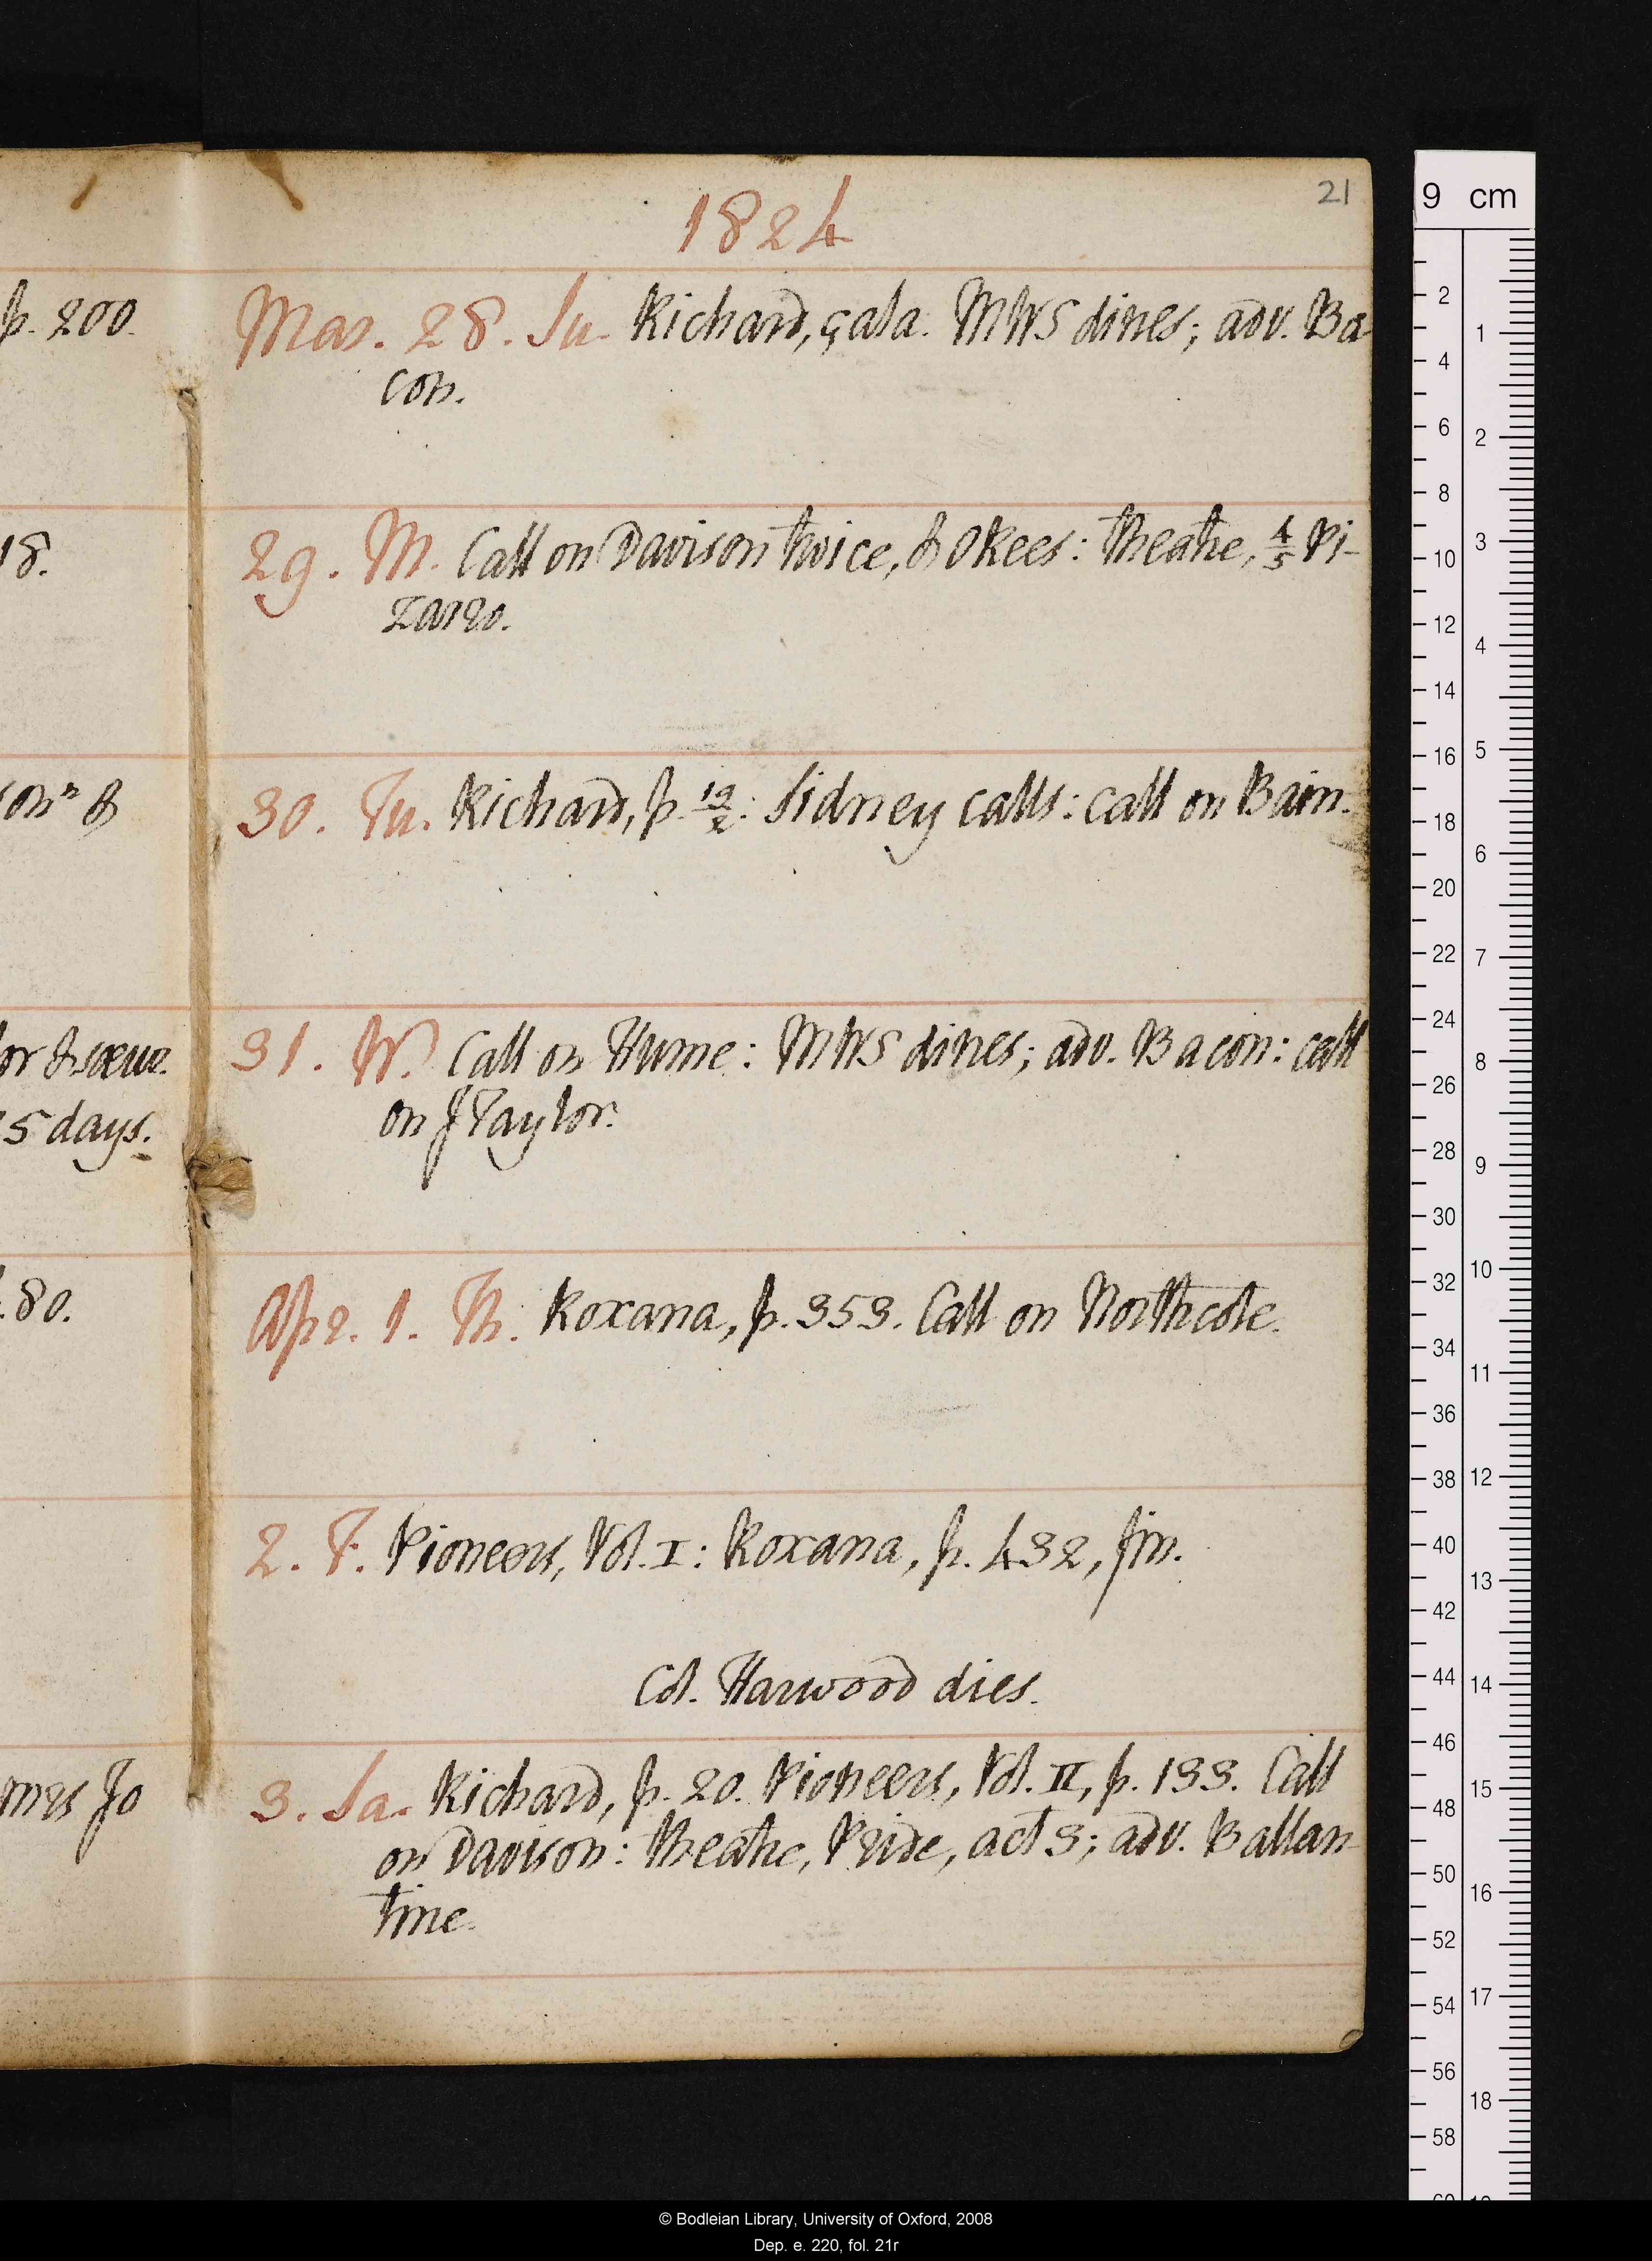 21
1824
p. 200.
Mar. 28. Su. Richard, çala. MWS dines; adv. Ba
con.
18.
29. M. Call on Davison twice, & OKees: theatre, 4/5 Pi-
zarro.
30. Tu. Richard, p. 19/2: Sidney calls: call on Bain.
5 days.
31. W. Call on Hume: MWS dines; adv. Bacon: call
on J Taylor.
80.
Apr. 1. Th. Roxana, p. 353. Call on Northcote.
2. F. Pioneers, Vol. I: Roxana, p. 432, fin.
Col. Harwood dies.
mrs Jo
3. Sa. Richard, p. 20. Pioneers, Vol. II, p. 133. Call
on Davison: theatre, Pride, act 3; adv. Ballan
tine.
9 cm
2
4
6
8
10
12
14
16
18
20
22
24
26
28
30
32
34
36
38
40
42
44
46
48
50
52
54
56
58
1
2
3
4
5
6
7
8
9
10
11
12
13
14
15
16
17
18
© Bodleian Library, University of Oxford, 2008
Dep. e. 220, fol. 21r